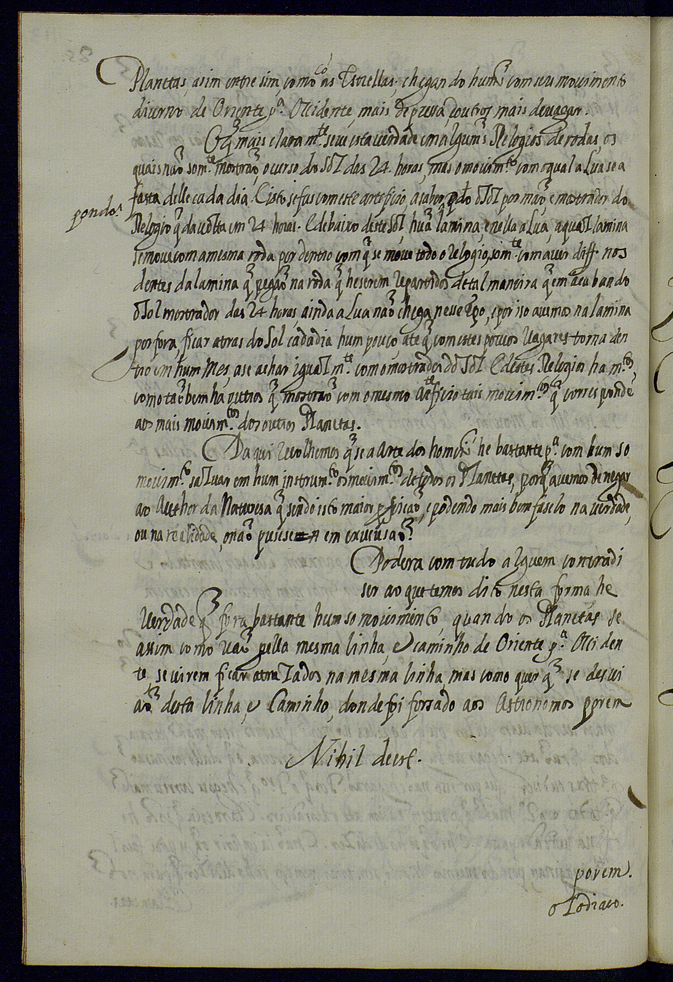 Planetas, asim entre sim como có as Estrellas chegando huns com seu movimento
diurno de Oriente pª. Occidente, mais depressa, doutros mais devagar.
O q̃ mais claramte. se ve esta verdade em algums Relogios de rodas, os
quais não somte. mostrão o curso do Sol das 24. horas, mas o movimto. com o qual a Lua se a
fasta delle cada dia. E isto se fas com este arteficio, a saber, o Sol por mão e mostrador do
pondo.
Relogio q̃ da volta em 24 horas. E debaixo deste Sol huã lamina e nella a Lua, a qual lamina
se move com a mesma roda por dentro com q̃ se move todo o relogio, somte. com aver diffª. nos
dentes da lamina q̃ pegaõ na roda q̃ hes erem repartidos de tal maneira q̃ em acabando
o Sol mostrador das 24 horas ainda a Lua naõ chega nesse tp̃o, e por iso avemos na lamina
por fora, ficar atras do Sol cada dia hum pouco ate q̃ com estes poucos vagares torna den
tro em hum Mes, a se achar igualmte. com o mostrador do Sol. E destes Relogios ha mtos.
como taõ bem ha outros q̃ mostraõ com o mesmo Arteficio tais movimtos. q̃ corresponde
aos mais movimtos. dos outros Planetas.
Daqui recolhemos q̃ se a Arte dos homẽs he bastante pª. com hum so
movimto. setuar em hum instrumto. os movimtos. de todos os Planetas, porq̃ avemos de negar
ao Author da Naturesa q̃ sendo isto maior pfeição, e podendo mais bem faselo na verdade,
ou na realidade, o não pusese em execusaõ?
Podera com tudo alguem contradi
ser ao que temos dito nesta forma he
Verdade q̃ fora bastante hum so movimento, quando os Planetas se
assim como vaõ pella mesma linha, e caminho de Oriente pª. Occiden
te, se virem ficar atrasados na mesma linha, mas como quer q̃ se desvi
aõ desta linha, e Caminho, donde foi forsado aos Astronomos porem
Nihil deest.
porem.
o Zodiaco.